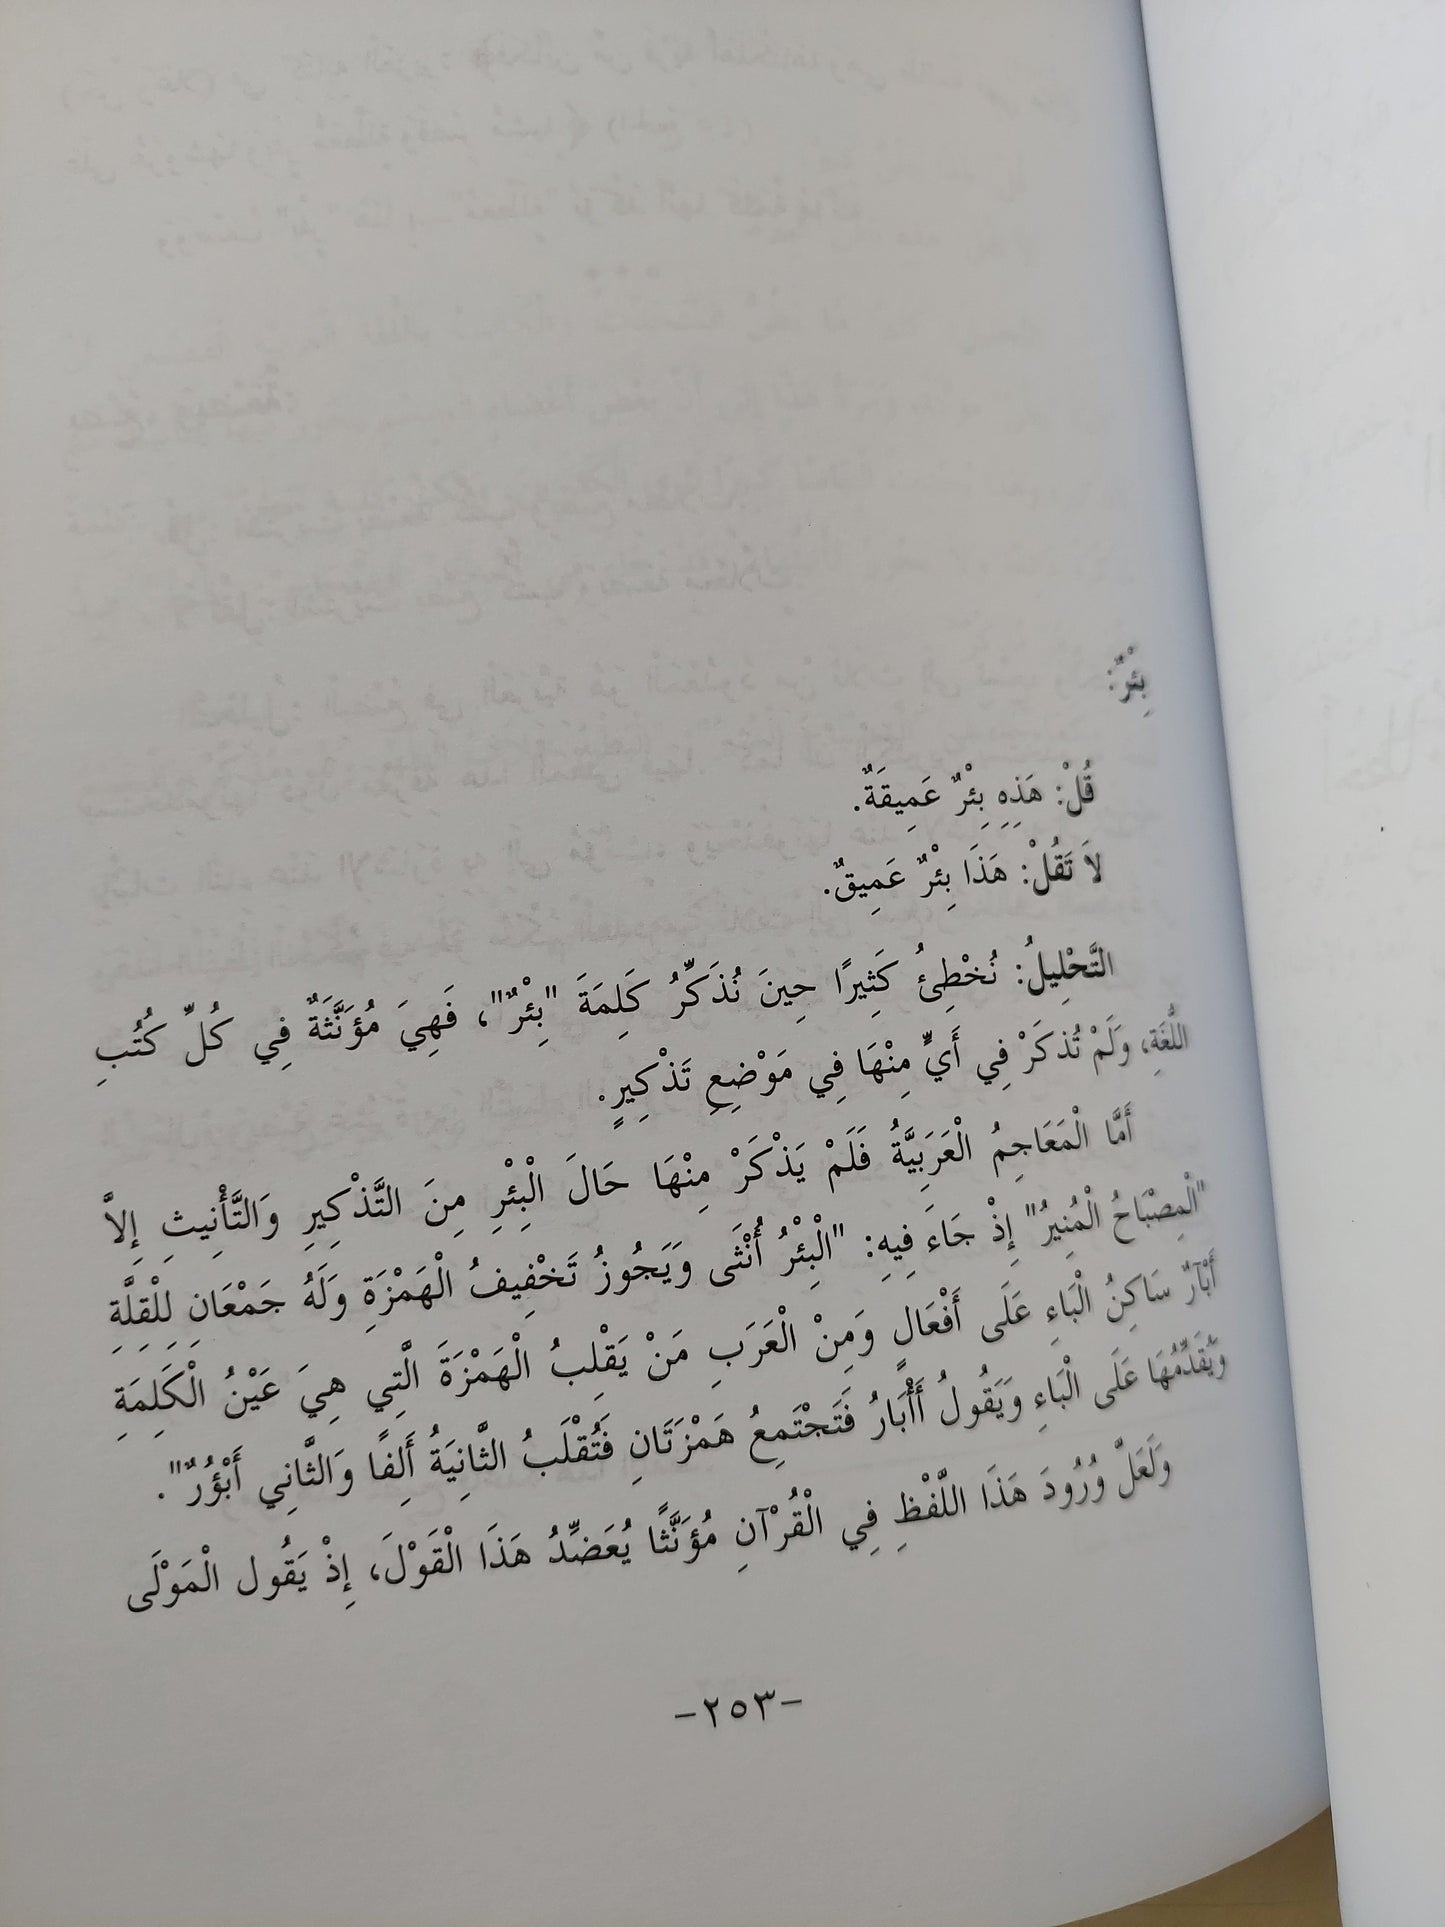 بِئْرٌ:
قُلْ: هَذِهِ بِئْرٌ عَمِيقَةٌ.
لاَ تَقُلْ: هَذَا بِئْرٌ عَمِيقٌ.
التَّحْلِيلُ: نُخْطِئُ كَثِيرًا حِينَ نُذَكِّرُ كَلِمَةَ "بِئْرٌ"، فَهِيَ مُؤَنَّثَةٌ فِي كُلِّ كُتُبِ
اللُّغَةِ، وَلَمْ تُذكَرْ فِي أَيٍّ مِنْهَا فِي مَوْضِعِ تَذْكِيرٍ.
أَمَّا الْمَعَاجِمُ الْعَرَبِيَّةُ فَلَمْ يَذْكَرْ مِنْهَا حَالَ الْبِئْرِ مِنَ التَّذْكِيرِ وَالتَّأْنِيثِ إِلاَّ
"الْمِصْبَاحُ الْمُنِيرُ" إِذْ جَاءَ فِيهِ: "الْبِئْرُ أُنْثَى وَيَجُوزُ تَخْفِيفُ الْهَمْزَةِ وَلَهُ جَمْعَانِ لِلْقِلَّةِ
أَبْآرٌ سَاكِنُ الْبَاءِ عَلَى أَفْعَالٍ وَمِنْ الْعَرَبِ مَنْ يَقْلِبُ الْهَمْزَةَ الَّتِي هِيَ عَيْنُ الْكَلِمَةِ
وَيُقَدِّمُهَا عَلَى الْبَاءِ وَيَقُولُ أَأْبَارُ فَتَجْتَمِعُ هَمْزَتَانِ فَتُقْلَبُ الثَّانِيَةُ أَلِفًا وَالثَّانِي أَبْؤُرٌ".
وَلَعَلَّ وُرُودَ هَذَا اللَّفْظِ فِي الْقُرْآنِ مُؤَنَّثًا يُعَضِّدُ هَذَا الْقَوْلَ، إِذْ يَقُول الْمَوْلَى
-٢٥٣-